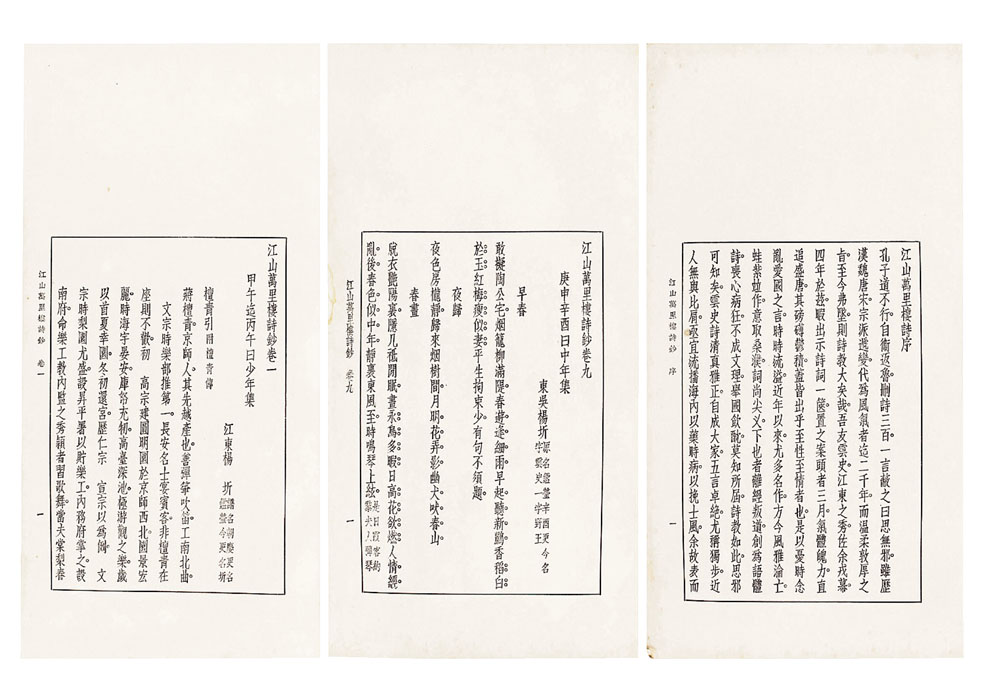 江山萬里樓詩序
孔子道不行自衛返魯刪詩三百一言蔽之曰思無邪雖歷
漢魏唐宋宗派遞變代爲風氣者迄二千年而温柔敦厚之
旨至今弗墜則詩教大矣哉吾友雲史江東之秀佐余戎幕
四年於茲暇出示詩詞一篋置之案頭者三月氣體魄力直
追盛唐其磅礴鬱積蓋皆出乎至性至情者也是以憂時念
亂愛國之言時時流溢近年以來尤多名作方今風雅淪亡
蛙紫竝作意取桑濮詞尚尖下也者離經叛道創爲語體
詩喪心病狂不成文理舉國飲酖莫知所屆詩教如此思邪
可知矣雲史詩清真雅正自成大家五言卓絶尤稱獨步近
人無與比肩亟宜流播海內以藥時病以挽士風余故表而
江山萬里樓詩鈔 序 一
江山萬里樓詩鈔卷九
庚申辛酉曰中年集
東吳楊圻原名鑑瑩辛酉更今名
字雲史一字野王
早春
敢擬陶公宅烟籠柳滿隄春遊逢細雨早起聽新鸝香稻白
於玉紅梅瘦似妻平生拘束少有句不須題
夜歸
夜色房櫳靜歸來烟樹間月明花弄影幽犬吠春山
春晝
脫衣艷陽裏隱几祗閒眠晝永鳥多暇日高花欲然人情經
亂後春色似中年靜裏東風至時鳴琴上絃是日霞客約
黎夫人彈琴
江山萬里樓詩鈔 卷九 一
江山萬里樓詩鈔卷一
甲午迄丙午曰少年集
江東楊 圻
鑑瑩今更名圻
檀青引附檀青傳
蔣檀青京師人其先越產也善彈箏吹笛工南北曲
文宗時樂部推第一長安名士宴賓客非檀青在
座則不歡初 高宗建圓明園於京師西北園景宏
麗時海宇晏安庫帑充牣高臺深池極游觀之樂歲
以首夏幸園冬初還宮歷仁宗 宣宗以爲例 文
宗時梨園尤盛設昇平署以貯樂工內務府掌之設
南府命樂工教內監之秀穎者習歌舞當夫棠梨春
江山萬里樓詩鈔 卷一 一